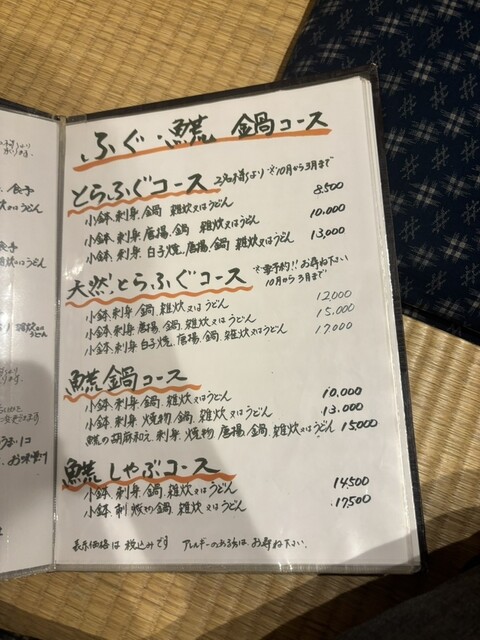 ふぐ・鱈 鍋コース
とらふぐコース 2名様より ※10月から3月まで
小鉢 刺身 鍋 雑炊又はうどん 8,500
小鉢 刺身 唐揚 鍋 雑炊又はうどん 10,000
小鉢 刺身 白子焼 唐揚 鍋 雑炊又はうどん 13,000
天然とらふぐコース ※要予約!! お尋ね下さい
10月から3月まで
小鉢 刺身 鍋 雑炊又はうどん 12,000
小鉢 刺身 唐揚 鍋 雑炊又はうどん 15,000
小鉢 刺身 白子焼 唐揚 鍋 雑炊又はうどん 17,000
鍋コース
小鉢 刺身 鍋 雑炊又はうどん 10,000
小鉢 刺身 焼物 鍋 雑炊又はうどん 13,000
の胡麻和え 刺身 焼物 唐揚 鍋 雑炊又はうどん 15000
しゃぶコース
小鉢 刺身 鍋 雑炊又はうどん 14500
小鉢 刺 焼物 鍋 雑炊又はうどん 17,500
表示価格は税込みです アレルギーのある方は、お尋ね下さい。